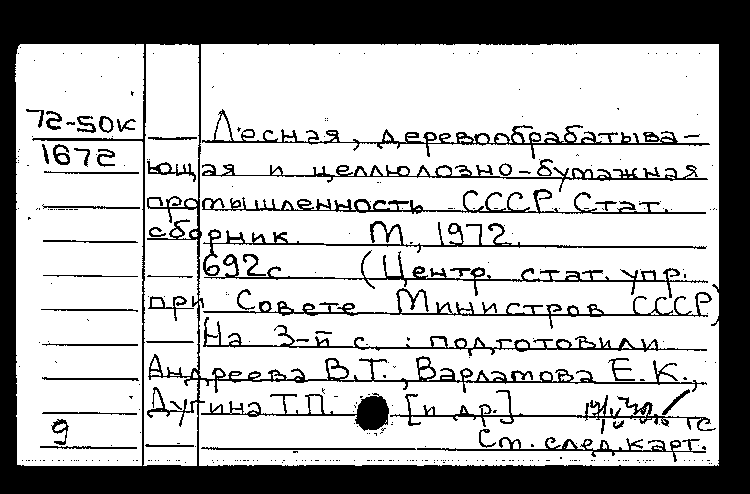 72-50К
1672
Лесная, деревообрабатыва-
ющая и целлюлозно-бумажная
промышленность СССР. Стат.
сборник. М., 1972.
692с (Центр. стат. упр.
при Совете Министров СССР)
На 3-й с. : подготовили
Андреева В.Т., Варламова Е.К.,
Дугина Т.П. [и др.].
гс
9
См. след. карт.